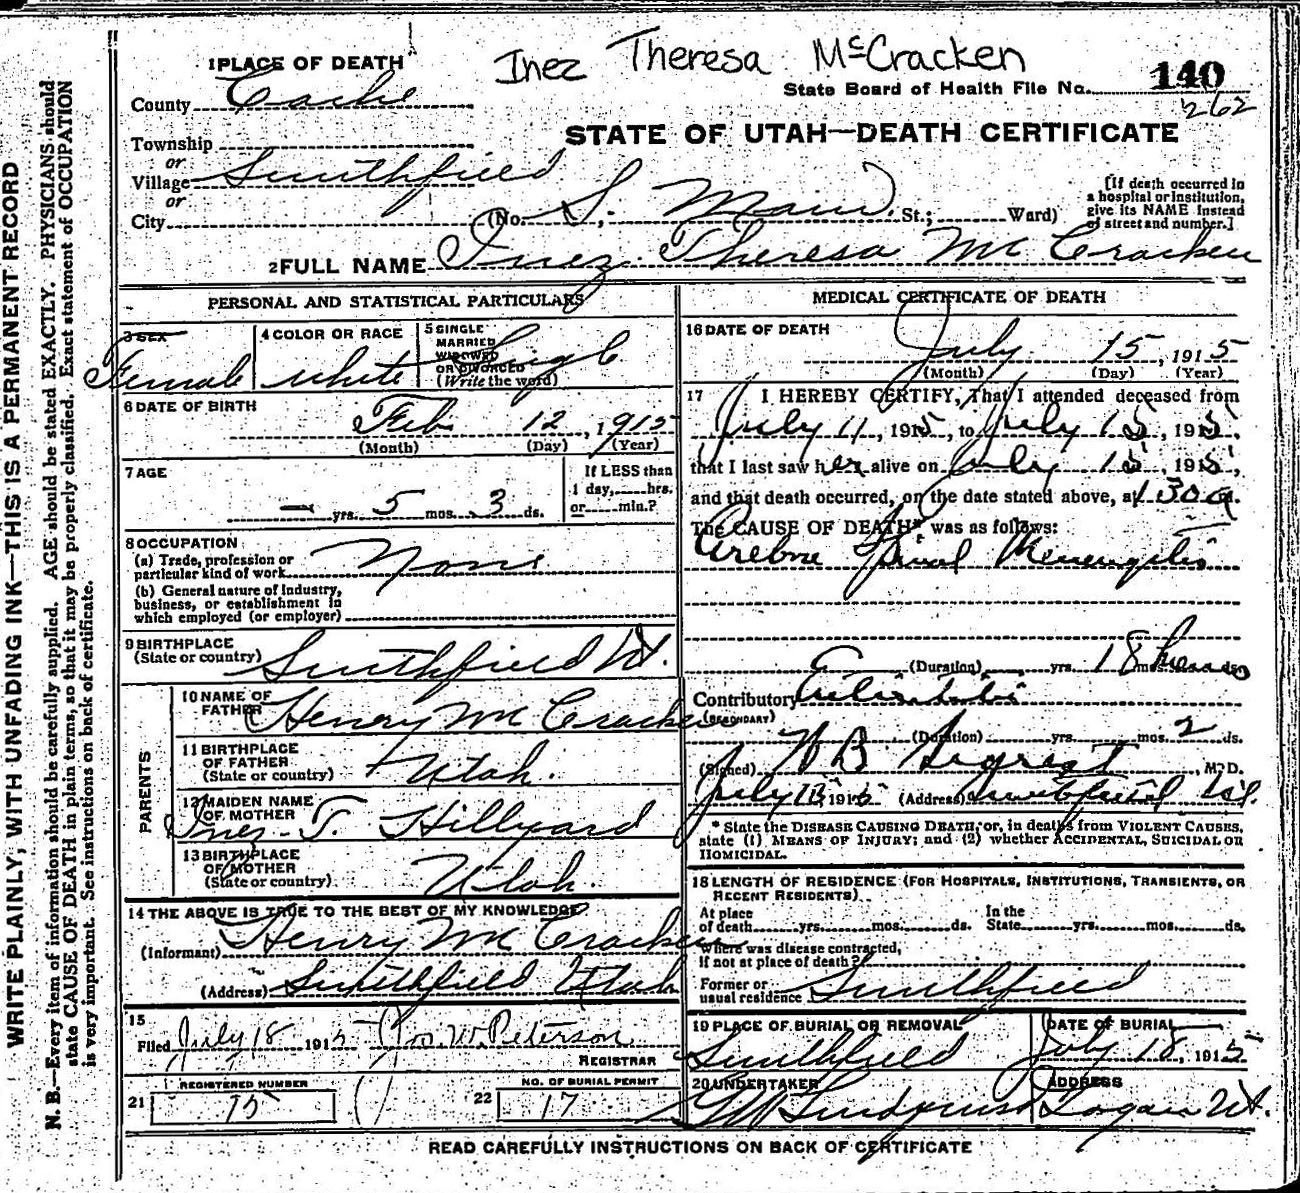 Inez Theresa McCracken
1 PLACE OF DEATH
State Board of Health File No. 140
262
County Cache
STATE OF UTAH—DEATH CERTIFICATE
Township
or
Village Smithfield
or
City (No. S. Main St.; Ward)
[If death occurred in a hospital or institution, give its NAME instead of street and number.]
2 FULL NAME Inez Theresa McCracken
PERSONAL AND STATISTICAL PARTICULARS
3 SEX Female
4 COLOR OR RACE white
5 SINGLE MARRIED WIDOWED OR DIVORCED (Write the word) Single
6 DATE OF BIRTH Feb 12, 1915
(Month) (Day) (Year)
7 AGE — yrs. 5 mos. 3 ds.
If LESS than 1 day, hrs. or min.?
8 OCCUPATION
(a) Trade, profession or particular kind of work None
(b) General nature of industry, business, or establishment in which employed (or employer)
9 BIRTHPLACE (State or country) Smithfield Ut.
PARENTS
10 NAME OF FATHER Henry McCracken
11 BIRTHPLACE OF FATHER (State or country) Utah.
12 MAIDEN NAME OF MOTHER Inez T. Hillyard
13 BIRTHPLACE OF MOTHER (State or country) Utah.
14 THE ABOVE IS TRUE TO THE BEST OF MY KNOWLEDGE
(Informant) Henry McCracken
(Address) Smithfield Utah
15
Filed July 18 1915 Jos. W. Peterson
REGISTRAR
21 REGISTERED NUMBER 15
22 NO. OF BURIAL PERMIT 17
MEDICAL CERTIFICATE OF DEATH
16 DATE OF DEATH July 15, 1915
(Month) (Day) (Year)
17 I HEREBY CERTIFY, That I attended deceased from
July 11, 1915, to July 15, 1915,
that I last saw her alive on July 15, 1915,
and that death occurred, on the date stated above, at 130 a.
The CAUSE OF DEATH* was as follows:
Cerebro Spinal Menengitis
(Duration) yrs. 18 mos. hours ds.
Contributory
(SECONDARY)
(Duration) yrs. mos. 2 ds.
(Signed) , M. D.
July 1915 (Address) Smithfield Ut.
* State the DISEASE CAUSING DEATH, or, in deaths from VIOLENT CAUSES, state (1) MEANS OF INJURY; and (2) whether ACCIDENTAL, SUICIDAL OR HOMICIDAL.
18 LENGTH OF RESIDENCE (FOR HOSPITALS, INSTITUTIONS, TRANSIENTS, OR RECENT RESIDENTS).
At place of death yrs. mos. ds. In the State yrs. mos. ds.
Where was disease contracted, if not at place of death?
Former or usual residence Smithfield
19 PLACE OF BURIAL OR REMOVAL Smithfield
DATE OF BURIAL July 18, 1915
20 UNDERTAKER
ADDRESS Logan Ut.
READ CAREFULLY INSTRUCTIONS ON BACK OF CERTIFICATE
WRITE PLAINLY, WITH UNFADING INK—THIS IS A PERMANENT RECORD
N. B.—Every item of information should be carefully supplied. AGE should be stated EXACTLY. PHYSICIANS should
state CAUSE OF DEATH in plain terms, so that it may be properly classified. Exact statement of OCCUPATION
is very important. See instructions on back of certificate.